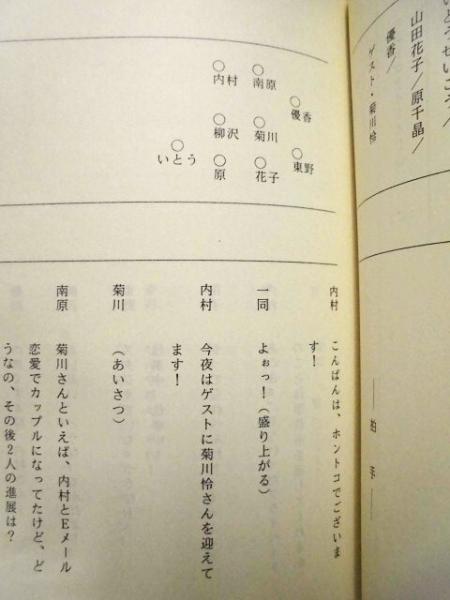 いとうせいこう/
山田花子/原千晶/
優香/
ゲスト・菊川怜
―拍手―
○内村
○南原
○優香
○柳沢
○菊川
○いとう
○原
○花子
○東野
内村 こんばんは、ホントコでございま
す!
一同 よぉっ!(盛り上がる)
内村 今夜はゲストに菊川怜さんを迎えて
ます!
菊川 (あいさつ)
南原 菊川さんといえば、内村とEメール
恋愛でカップルになってたけど、ど
うなの、その後2人の進展は?